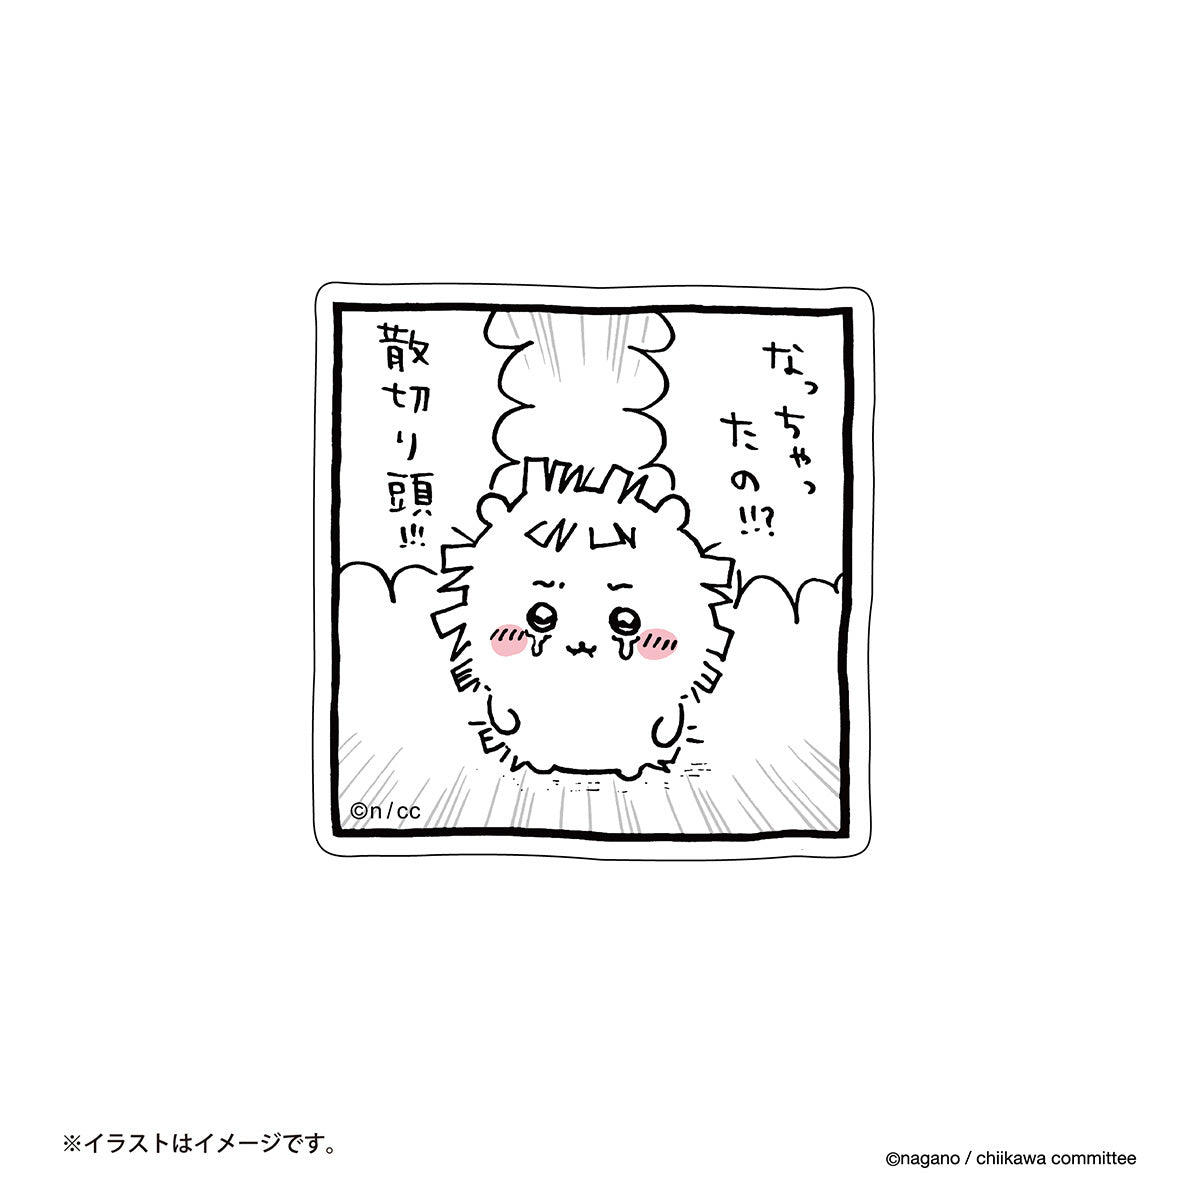 なっちゃっ
たの!!?
散切り頭!!!
©n/cc
※イラストはイメージです。
©nagano / chiikawa committee